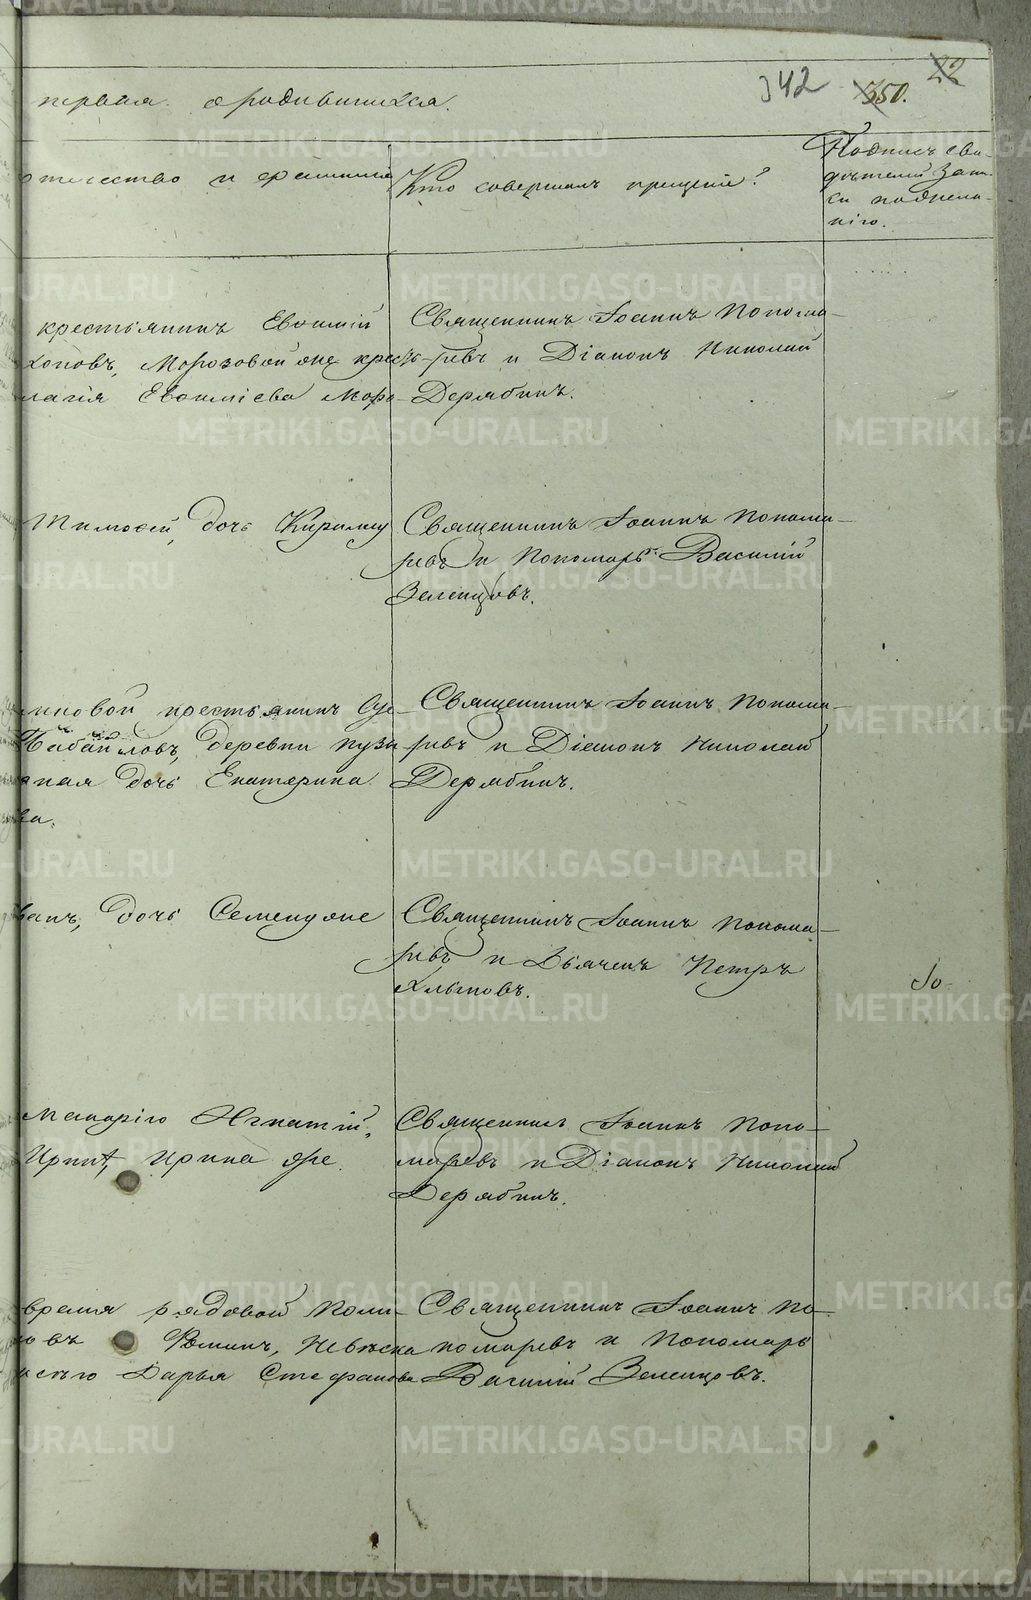 342 350. 22
первая о родившихся.
отчество и фамилия
Кто совершалъ крещеніе?
Подпись сви-
дѣтелей запи-
си по желa-
нію.
крестьянинъ Евѳимій
хоновъ, Морозовой же крест-
Евѳиміева Моро-
Священникъ Іоаннъ Понома-
ревъ и Діаконъ Николай
Дерябинъ.
Тимоѳей, дочь Кириллу
Священникъ Іоаннъ Понома-
ревъ и Пономарь Василій
Зеленцовъ.
новой крестьянинъ
Кабайловъ, деревни Кузи
дочь Екатерина
ва.
Священникъ Іоаннъ Понома-
ревъ и Діаконъ Николай
Дерябинъ.
ванъ, дочь Семену же
Священникъ Іоаннъ Понома-
ревъ и Дьячекъ Петръ
Хлыновъ.
Макарію Игнатій,
Ирина же.
Священникъ Іоаннъ Поно-
маревъ и Діаконъ Николай
Дерябинъ.
время рядовой Поли-
овъ Ѳоминъ, Невѣста
Дарья Стефанова
Священникъ Іоаннъ По-
номаревъ и Пономарь
Василій Зеленцовъ.
METRIKI.GASO-URAL.RU